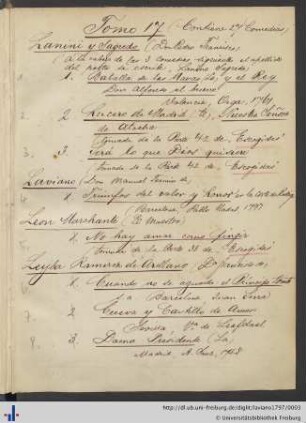 Tomo 17 (Contiene 27 Comedias)
Zanini y Sagredo
(á la cabeza de las 3 comedias, siguiendo el apellido
1. Batalla de las Navas, La, y el Rey
Don Alfonso el bueno
Valencia, Orga, 1761
2. Lucero de Madrid, El, Nuestra Señora
de Atocha
tomada de la Parte 42 de Escogidas
3. Será lo que Dios quisiere
tomada de la Parte 42 de Escogidas
Laviano (Don Manuel Fermin de)
1. Triunfos del valor y honor
1797
Leon Marchante (El Maestro)
1. No hay amar como fingir
tomada de la Parte de Escogidas
Leyba Ramirez de Arellano, Dn Francisco de
1. Cuando no se aguarda
Barcelona, Juan Serra
2. Cueva y Castillo de Amor
Sevilla, Vda de Leefdael
3. Dama Presidente (La)
Madrid, A. Sanz,
http://dl.ub.uni-freiburg.de/diglit/laviano1797/0003
© Universitätsbibliothek Freiburg